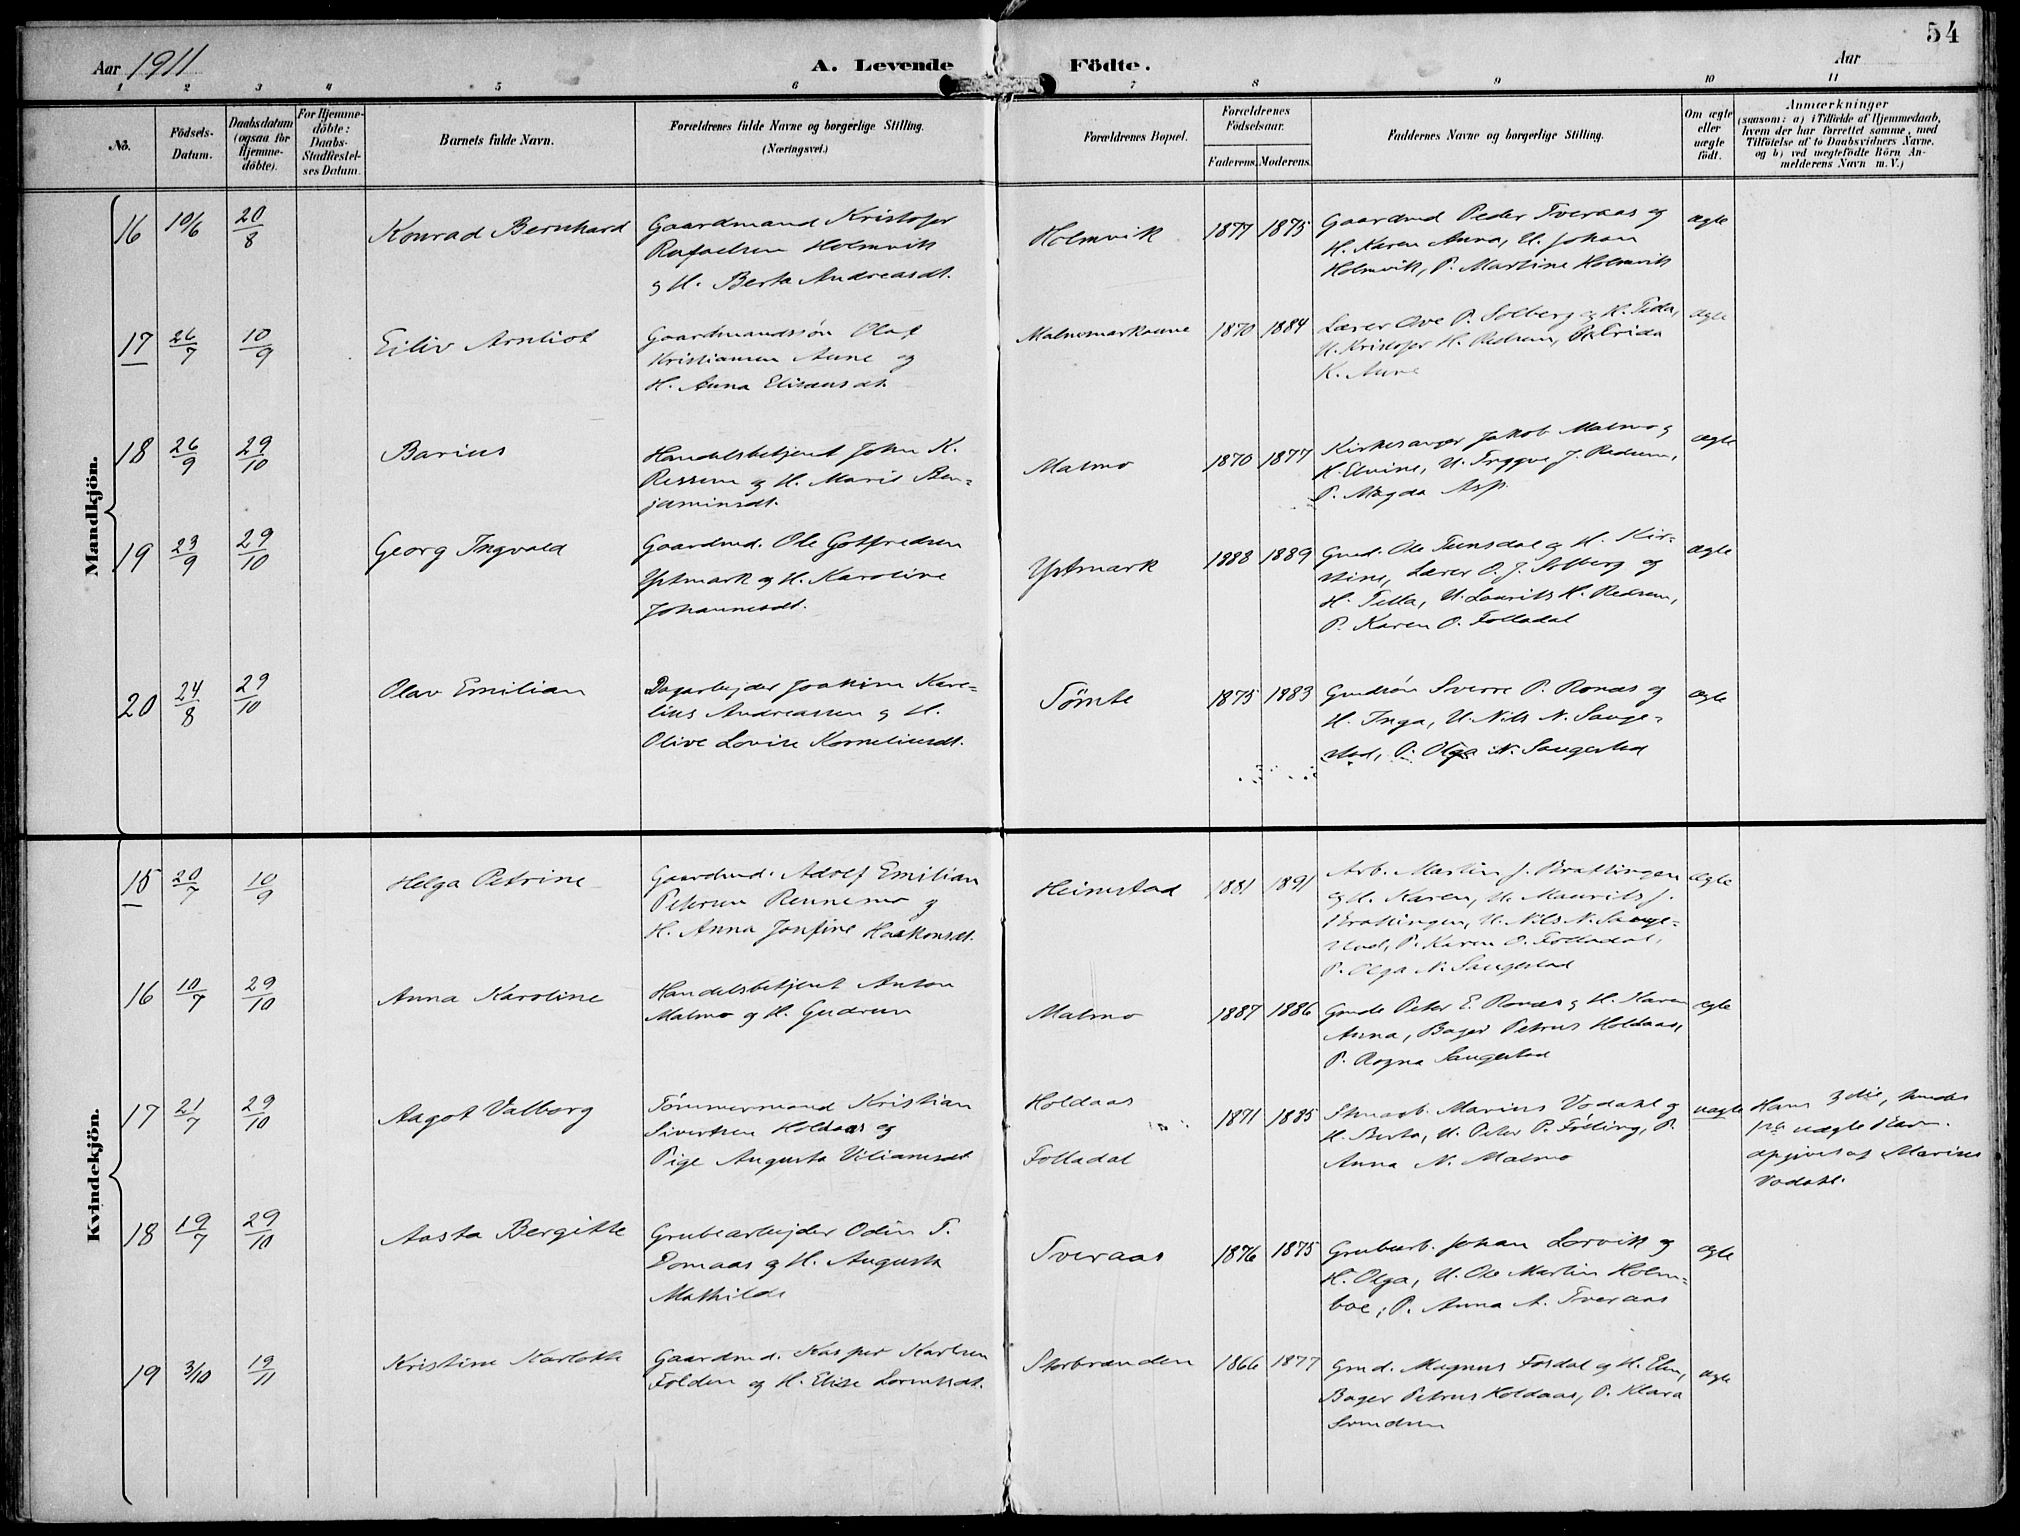 54
Aar 1911
A. Levende Födte.
Aar
1 2 3 4 5 6 7 8 9 10 11
No.
Födsels-Datum.
Daabsdatum (ogsaa for Hjemmedöbte).
For Hjemmedöbte: Daabs-Stadfæstelses Datum.
Barnets fulde Navn.
Forældrenes fulde Navne og borgerlige Stilling. (Næringsvei.)
Forældrenes Bopæl.
Forældrenes Födselsaar.
Faderens. Moderens.
Faddernes Navne og borgerlige Stilling.
Om ægte eller uægte födt.
Anmærkninger
(saasom: a) i Tilfælde af Hjemmedaab,
hvem der har forrettet samme, med
Tilföielse af to Daabsvidners Navne.
og b) ved uægtefödte Börn An-
melderens Navn m. V.)
Mandkjön.
16 10/6 20/8 Konrad Bernhard
Gaardmand Kristofer
Rafaelsen Holmvik
og H. Berta Andreasdt.
Holmvik 1877 1875
Gaardmd Peder Tveraas og
H. Karen Anna, U. Johan
Holmvik, P. Martine Holmvik
ægte
17 26/7 10/9 Eiliv Arnliot
Gaardmandssøn Olaf
Kristiansen Aune og
H. Anna Elisdt.
Malmomarkaune 1870 1884
Lærer Ove P. Solberg og H.
U. Kristofer H. Redsem,
K. Aune
ægte
18 26/9 29/10 Barius
Handelsbetjent John K.
Ressem og H. Marie Ben=
jaminsdt.
Malmo 1870 1877
Kirkesanger Jakob Malmo og
H. Elvine, U. Tryggve J. Redsem,
P. Magda Asp.
ægte
19 23/9 29/10 Georg Ingvald
Gaardmd. Ole Gotfredsen
Ystmark og H. Karoline
Johannesdt.
Ystmark 1888 1889
Gmd. Ole Tunsdal og H. Kir-
stine, Lærer O. J. Solberg og
H. Tella, U. Laurits H. Redsem,
P. Karen O. Folladal
ægte
20 24/8 29/10 Olav Emilian
Dagarbejder Joakim Kare-
lius Andreassen og H.
Olive Lovise Korneliusdt.
Tömte 1875 1883
Gmdsøn Sverre P. Ronæs og
H. Inga, U. Nils N. Sauge-
stad, P. Olga N. Saugestad
ægte
Kvindekjön.
15 20/7 10/9 Helga Petrine
Gaardmd. Adolf Emilian
Petersen Rennemo og
H. Anna Josefine Haakonsdt.
Heimstad 1881 1891
Arb. Martin J. Brattingen
og H. Karen, U. Maurits J.
Brattingen, U. Nils N. Sauge-
stad, P. Karen O. Folladal,
P. Olga N. Saugestad
ægte
16 10/7 29/10 Anna Karoline
Handelsbetjent Anton
Malmo og H. Gudrun
Malmo 1887 1886
Peter E. Ronæs og H. Karen
Anna, Bager Petrus Holdaas,
P. Ragna Saugestad
ægte
17 21/7 29/10 Aagot Valborg
Tömmermand Kristian
Sivertsen Holdaas og
Pige Augusta Viliamsdt.
Holdaas
Folladal
1871 1885
Marius Vodahl og
H. Berta, U. Peter P. Fölling, P.
Anna N. Malmo
uægte
Hans 3die, hendes
1ste uægte Barn.
opgivet af Marius
Vodahl.
18 19/7 29/10 Aasta Bergitte
Grubearbejder Odin T.
Domaas og H. Augusta
Mathilde
Tveraas 1876 1875
Grubearb. Johan Lorvik og
H. Olga, U. Ole Martin Holm=
boe, P. Anna A. Tveraas
ægte
19 3/10 19/11 Kristine Karlotte
Gaardmd. Kasper Karlsen
Folden og H. Elise Lorentsdt.
Storbranden 1866 1877
Gmd. Magnus Fosdal og H. Elen,
Bager Petrus Holdaas, P. Klara
Svendsen
ægte